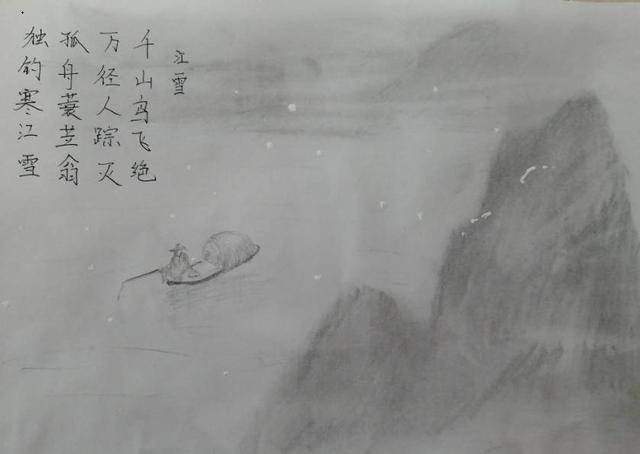 江雪
千山鸟飞绝
万径人踪灭
孤舟蓑苙翁
独钓寒江雪